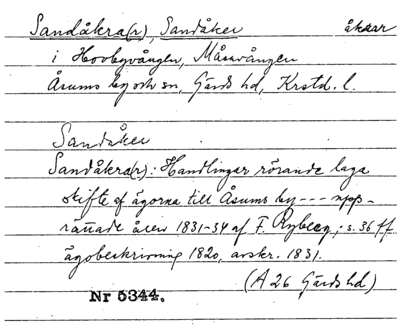 Sandåkra(r), Sandåker åkrar
i Hovbyvången, Måsavången
Åsums by och sn, Gärds hd, Krstd. l.
Sandåker
Sandåkra(r): Handlingar rörande laga
skifte af ägorna till Åsums by --- upp-
rättade åren 1831-34 af F. Rybecq; s. 36 ff
ägobeskrivning 1820, avskr. 1831.
(A 26 Gärds hd)
Nr 5344.